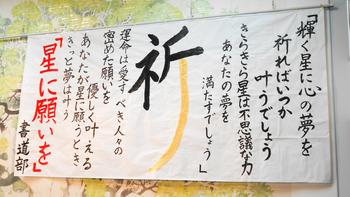 「輝く星に心の夢を
祈ればいつか
叶うでしょう
きらきら星は不思議な力
あなたの夢を
満たすでしょう」
祈
運命は愛すべき人々の
密めた願いを
優しく叶える
あなたが星に願うとき
きっと夢は叶う
『星に願いを』
書道部